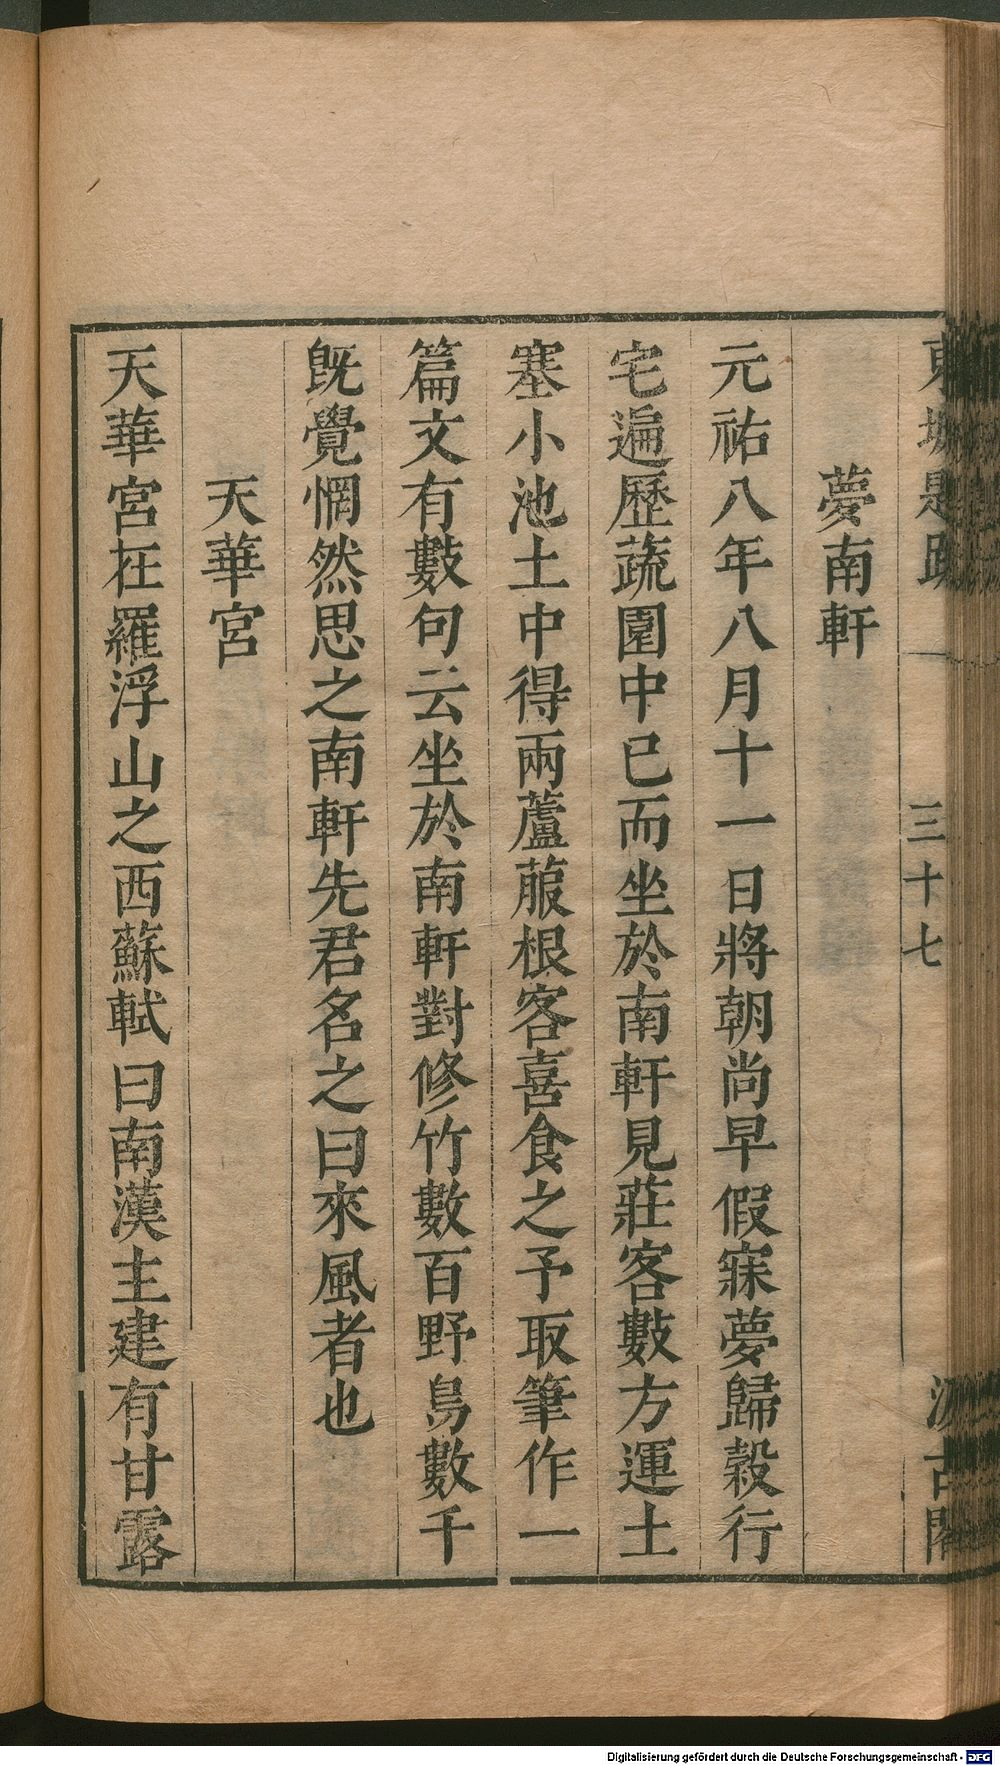 東坡題跋 三十七 汲古閣
夢南軒
元祐八年八月十一日將朝尚早假寐夢歸穀行
宅遍歷蔬園中已而坐於南軒見莊客數方運土
塞小池土中得兩蘆菔根客喜食之予取筆作一
篇文有數句云坐於南軒對修竹數百野鳥數千
旣覺惘然思之南軒先君名之曰來風者也
天華宮
天華宮在羅浮山之西蘇軾曰南漢主建有甘露
Digitalisierung gefördert durch die Deutsche Forschungsgemeinschaft - DFG